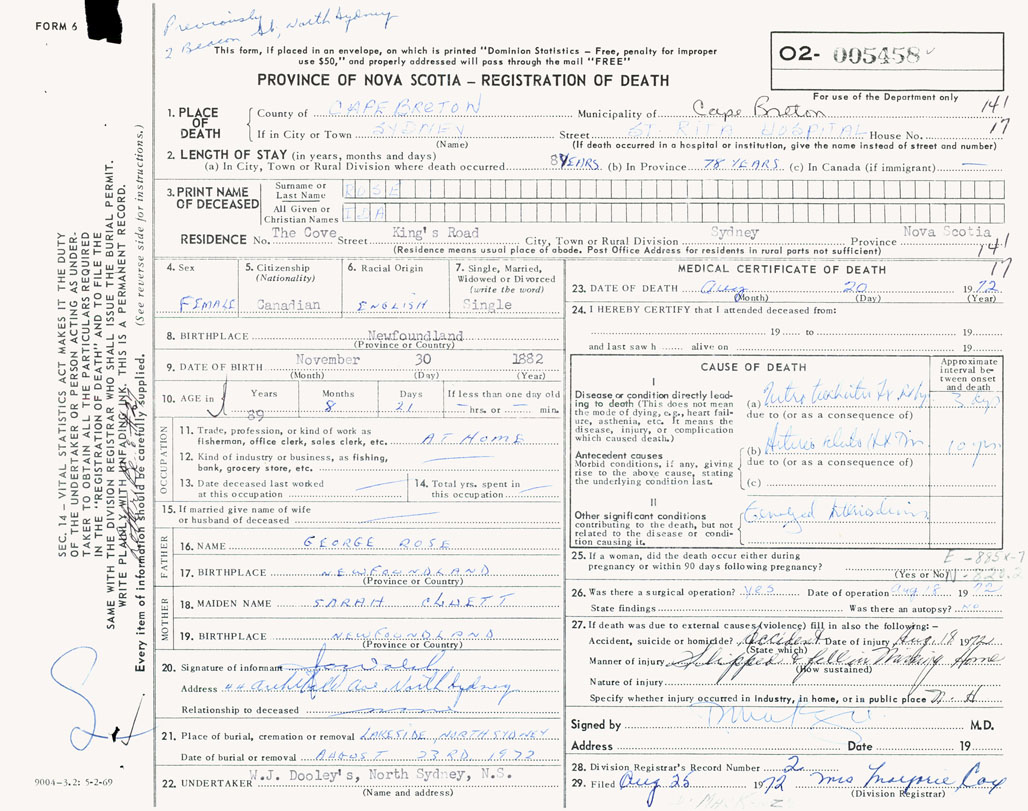 FORM 6
Previously
2 Beacon St, North Sydney
This form, if placed in an envelope, on which is printed "Dominion Statistics — Free, penalty for improper
use $50," and properly addressed will pass through the mail "FREE"
PROVINCE OF NOVA SCOTIA — REGISTRATION OF DEATH
02- 005458
For use of the Department only
141
17
1. PLACE OF DEATH
County of CAPE BRETON Municipality of Cape Breton
If in City or Town SYDNEY Street ST RITA HOSPITAL House No.
(Name) (If death occurred in a hospital or institution, give the name instead of street and number)
2. LENGTH OF STAY (in years, months and days)
(a) In City, Town or Rural Division where death occurred 8 YEARS (b) In Province 78 YEARS (c) In Canada (if immigrant) —
3. PRINT NAME OF DECEASED
Surname or Last Name ROSE
All Given or Christian Names IDA
RESIDENCE No. The Cove Street King's Road City, Town or Rural Division Sydney Province Nova Scotia
(Residence means usual place of abode. Post Office Address for residents in rural parts not sufficient)
141
17
4. Sex FEMALE
5. Citizenship (Nationality) Canadian
6. Racial Origin ENGLISH
7. Single, Married, Widowed or Divorced (write the word) Single
8. BIRTHPLACE Newfoundland
(Province or Country)
9. DATE OF BIRTH November 30 1882
(Month) (Day) (Year)
10. AGE in Years Months Days If less than one day old
89 8 21 — hrs. or — min.
OCCUPATION
11. Trade, profession, or kind of work as
fisherman, office clerk, sales clerk, etc. AT HOME
12. Kind of industry or business, as fishing,
bank, grocery store, etc.
13. Date deceased last worked
at this occupation
14. Total yrs. spent in
this occupation
15. If married give name of wife
or husband of deceased
FATHER
16. NAME GEORGE ROSE
17. BIRTHPLACE NEWFOUNDLAND
(Province or Country)
MOTHER
18. MAIDEN NAME SARAH CLUETT
19. BIRTHPLACE NEWFOUNDLAND
(Province or Country)
20. Signature of informant
Address 44 Archibald Ave North Sydney
Relationship to deceased
21. Place of burial, cremation or removal LAKESIDE, NORTH SYDNEY
Date of burial or removal AUGUST 23RD 1972
22. UNDERTAKER W.J. Dooley's, North Sydney, N.S.
(Name and address)
MEDICAL CERTIFICATE OF DEATH
23. DATE OF DEATH Aug 20 1972
(Month) (Day) (Year)
24. I HEREBY CERTIFY that I attended deceased from:
19 to 19
and last saw h alive on 19
CAUSE OF DEATH
Approximate interval between onset and death
I
Disease or condition directly leading to death (This does not mean
the mode of dying, e.g., heart failure, asthenia, etc. It means the
disease, injury, or complication
which caused death.)
(a) 3 days
due to (or as a consequence of)
Antecedent causes
Morbid conditions, if any, giving
rise to the above cause, stating
the underlying condition last.
(b) 10 yrs
due to (or as a consequence of)
(c)
II
Other significant conditions
contributing to the death, but not
related to the disease or condition causing it.
25. If a woman, did the death occur either during
pregnancy or within 90 days following pregnancy?
(Yes or No)
E-885X-7
N-820.2
26. Was there a surgical operation? yes Date of operation Aug 18 1972
State findings Was there an autopsy? no
27. If death was due to external causes (violence) fill in also the following:—
Accident, suicide or homicide? Accident Date of injury Aug. 18 1972
(State which)
Manner of injury Slipped & fell in Nursing Home
(How sustained)
Nature of injury
Specify whether injury occurred in industry, in home, or in public place N. H
Signed by M.D.
Address Date 19
28. Division Registrar's Record Number 2
29. Filed Aug 25 1972 Mrs Marjorie Cox
(Division Registrar)
SEC. 14 — VITAL STATISTICS ACT MAKES IT THE DUTY
OF THE UNDERTAKER OR PERSON ACTING AS UNDERTAKER TO OBTAIN ALL THE PARTICULARS REQUIRED
IN THE "REGISTRATION OF DEATH" AND TO FILE THE
SAME WITH THE DIVISION REGISTRAR WHO SHALL ISSUE THE BURIAL PERMIT.
WRITE PLAINLY WITH UNFADING INK. THIS IS A PERMANENT RECORD.
Every item of information should be carefully supplied. (See reverse side for instructions.)
9004-3.2: 5-2-69